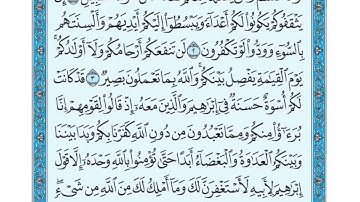 يَثْقَفُوكُمْ يَكُونُوا۟ لَكُمْ أَعْدَآءً وَيَبْسُطُوٓا۟ إِلَيْكُمْ أَيْدِيَهُمْ وَأَلْسِنَتَهُم
بِٱلسُّوٓءِ وَوَدُّوا۟ لَوْ تَكْفُرُونَ ٢ لَن تَنفَعَكُمْ أَرْحَامُكُمْ وَلَآ أَوْلَٰدُكُمْ ۚ
يَوْمَ ٱلْقِيَٰمَةِ يَفْصِلُ بَيْنَكُمْ ۚ وَٱللَّهُ بِمَا تَعْمَلُونَ بَصِيرٌ ٣ قَدْ كَانَتْ
لَكُمْ أُسْوَةٌ حَسَنَةٌ فِىٓ إِبْرَٰهِيمَ وَٱلَّذِينَ مَعَهُۥٓ إِذْ قَالُوا۟ لِقَوْمِهِمْ إِنَّا
بُرَءَٰٓؤُا۟ مِنكُمْ وَمِمَّا تَعْبُدُونَ مِن دُونِ ٱللَّهِ كَفَرْنَا بِكُمْ وَبَدَا بَيْنَنَا
وَبَيْنَكُمُ ٱلْعَدَٰوَةُ وَٱلْبَغْضَآءُ أَبَدًا حَتَّىٰ تُؤْمِنُوا۟ بِٱللَّهِ وَحْدَهُۥٓ إِلَّا قَوْلَ
إِبْرَٰهِيمَ لِأَبِيهِ لَأَسْتَغْفِرَنَّ لَكَ وَمَآ أَمْلِكُ لَكَ مِنَ ٱللَّهِ مِن شَىْءٍ ۖ